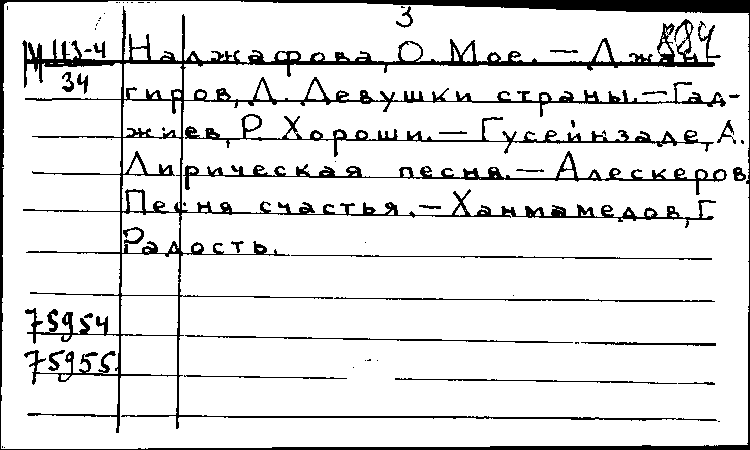 3
884
М 113-4
34
Наджафова, О. Мое. — Джан-
гиров, Д. Девушки страны. — Гад-
жиев, Р. Хороши. — Гусейнзаде, А.
Лирическая песня. — Алескеров,
Песня счастья. — Ханмамедов, Г.
Радость.
75954
75955.